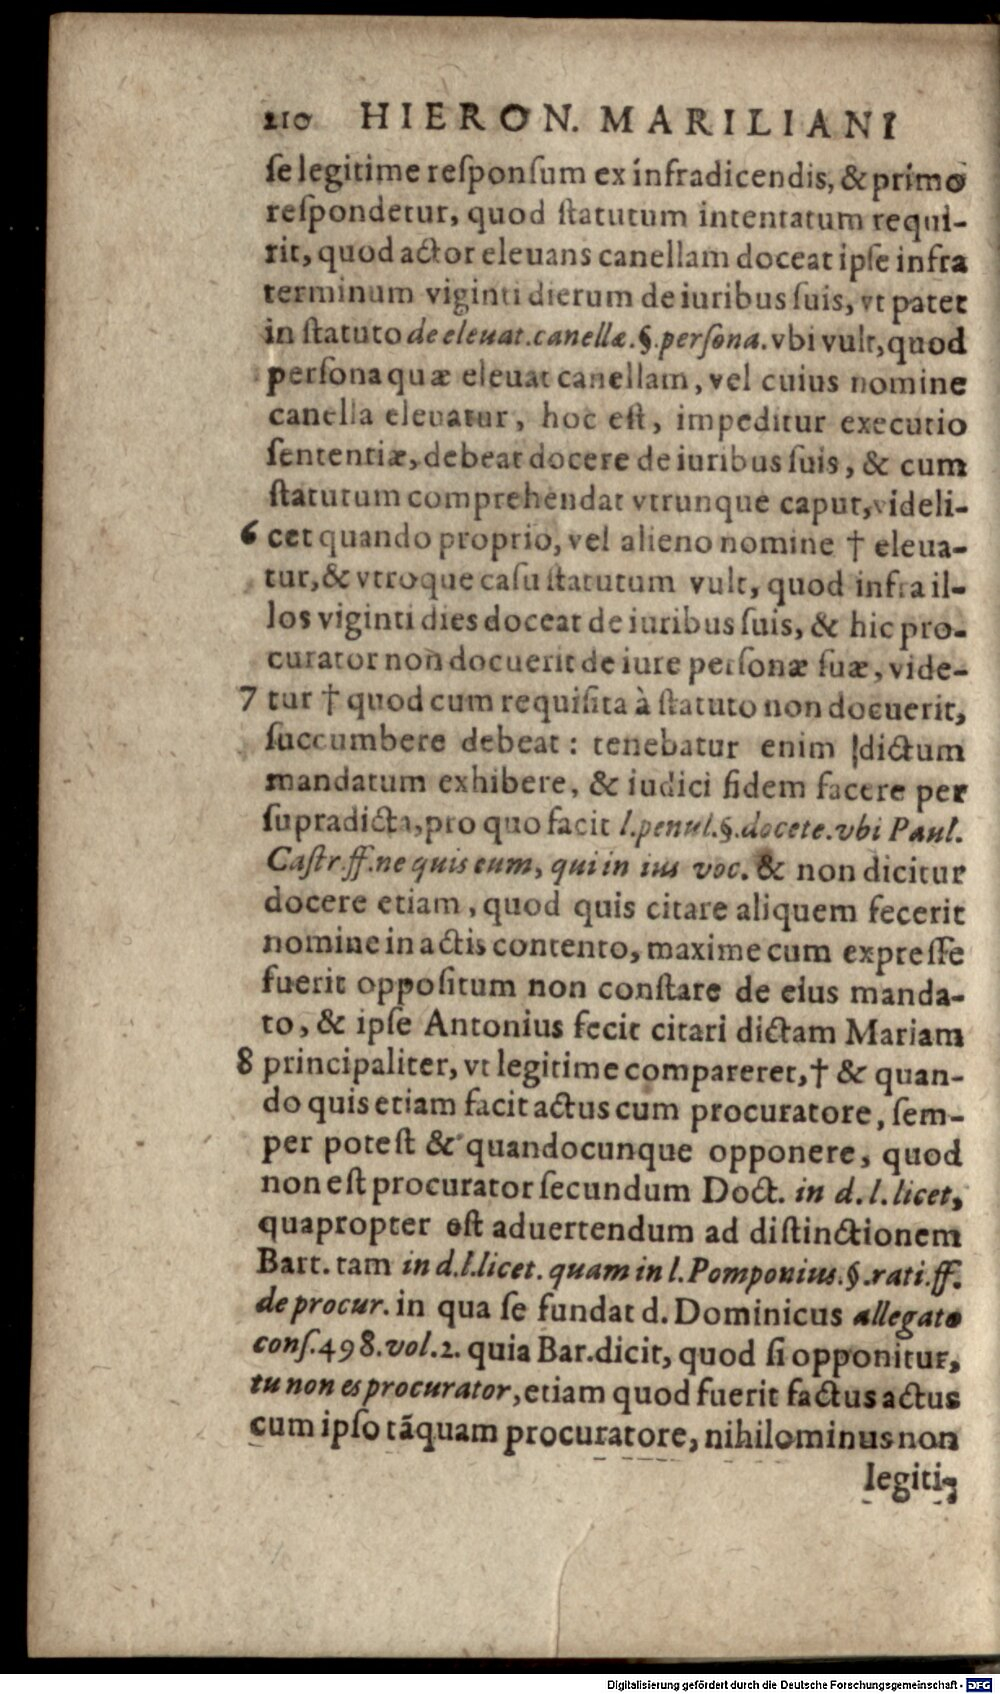 210 HIERON. MARILIANI
ſe legitime reſponſum ex infradicendis, & primo
reſpondetur, quod ſtatutum intentatum requi-
rit, quod actor eleuans canellam doceat ipſe infra
terminum viginti dierum de iuribus ſuis, vt patet
in ſtatuto de eleuat. canellæ. §. perſona. vbi vult, quod
perſona quæ eleuat canellam, vel cuius nomine
canella eleuatur, hoc eſt, impeditur executio
ſententiæ, debeat docere de iuribus ſuis, & cum
ſtatutum comprehendat vtrunque caput, videli-
6 cet quando proprio, vel alieno nomine † eleua-
tur, & vtroque caſu ſtatutum vult, quod infra il-
los viginti dies doceat de iuribus ſuis, & hic pro-
curator non docuerit de iure perſonæ ſuæ, vide-
7 tur † quod cum requiſita à ſtatuto non docuerit,
ſuccumbere debeat: tenebatur enim dictum
mandatum exhibere, & iudici fidem facere per
ſupradicta, pro quo facit l. penul. §. docete. vbi Paul.
Caſtr. ff. ne quis eum, qui in ius voc. & non dicitur
docere etiam, quod quis citare aliquem fecerit
nomine in actis contento, maxime cum expreſſe
fuerit oppoſitum non conſtare de eius manda-
to, & ipſe Antonius fecit citari dictam Mariam
8 principaliter, vt legitime compareret, † & quan-
do quis etiam facit actus cum procuratore, ſem-
per poteſt & quandocunque opponere, quod
non eſt procurator ſecundum Doct. in d. l. licet,
quapropter eſt aduertendum ad diſtinctionem
Bart. tam in d. l. licet. quam in l. Pomponius. §. rati. ff.
de procur. in qua ſe fundat d. Dominicus allegato
conſ. 498. vol. 2. quia Bar. dicit, quod ſi opponitur,
tu non es procurator, etiam quod fuerit factus actus
cum ipſo tãquam procuratore, nihilominus non
legiti-
Digitalisierung gefördert durch die Deutsche Forschungsgemeinschaft - DFG